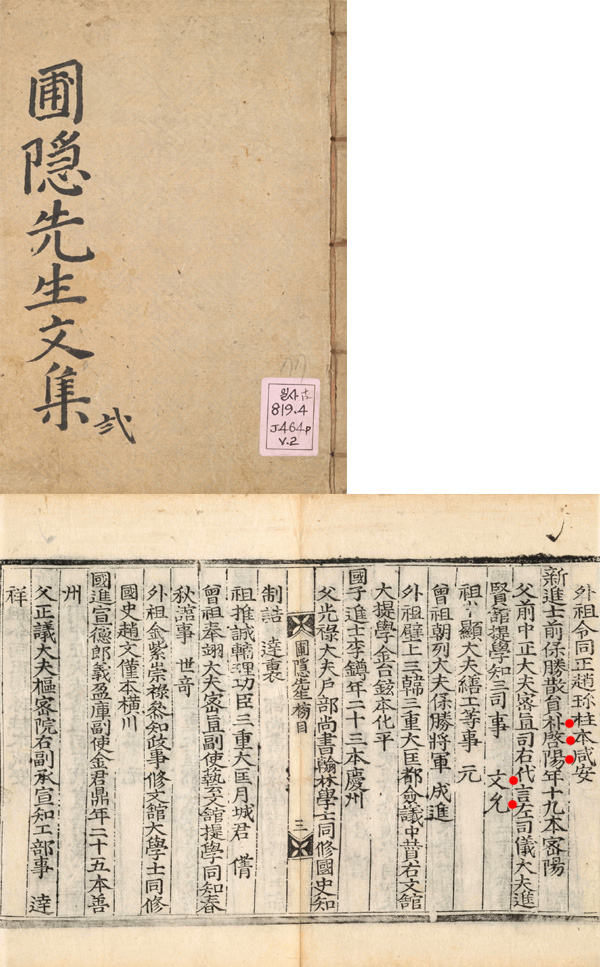 圃隠先生文集
弍
원사 古
819.4
J464p
V.2
外祖令同正趙珎柱本咸安
新進士前保勝散員朴啓陽年十九本密陽
父前中正大夫密直司右代言左司儀大夫進
賢舘提學知三司事 文允
祖 顯大夫繕工等事 元
曾祖朝列大夫保勝將軍 成進
外祖壁上三韓三重大匡都僉議中賛右文館
大提學金台鉉本化平
國子進士李蹲年二十三本慶州
父光祿大夫户部尚書翰林學士同修國史知
制誥 達衷
圃隱先生榜目
三
祖推誠輔理功臣三重大匡月城君 蒨
曾祖奉翊大夫密直副使藝文舘提學同知春
秋舘事 世竒
外祖金紫崇祿叅知政事修文舘大學士同修
國史趙文僅本橫川
國進宣德郎義盈庫副使金君鼎年二十五本善
州
父正議大夫樞密院右副承宣知工部事 達
祥